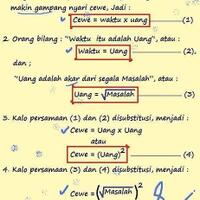 makin gampang nyari cewe, Jadi :
Cewe = waktu x uang (1)
2. Orang bilang : "Waktu itu adalah Uang", atau :
Waktu = Uang (2),
dan ;
"Uang adalah akar dari segala Masalah", atau :
Uang = √Masalah (3)
3. Kalo persamaan (1) dan (2) disubstitusi, menjadi :
Cewe = Uang x Uang
atau
Cewe = (Uang)² (4)
4. Kalo persamaan (3) dan (4) disubstitusi, menjadi :
Cewe = (√Masalah)²